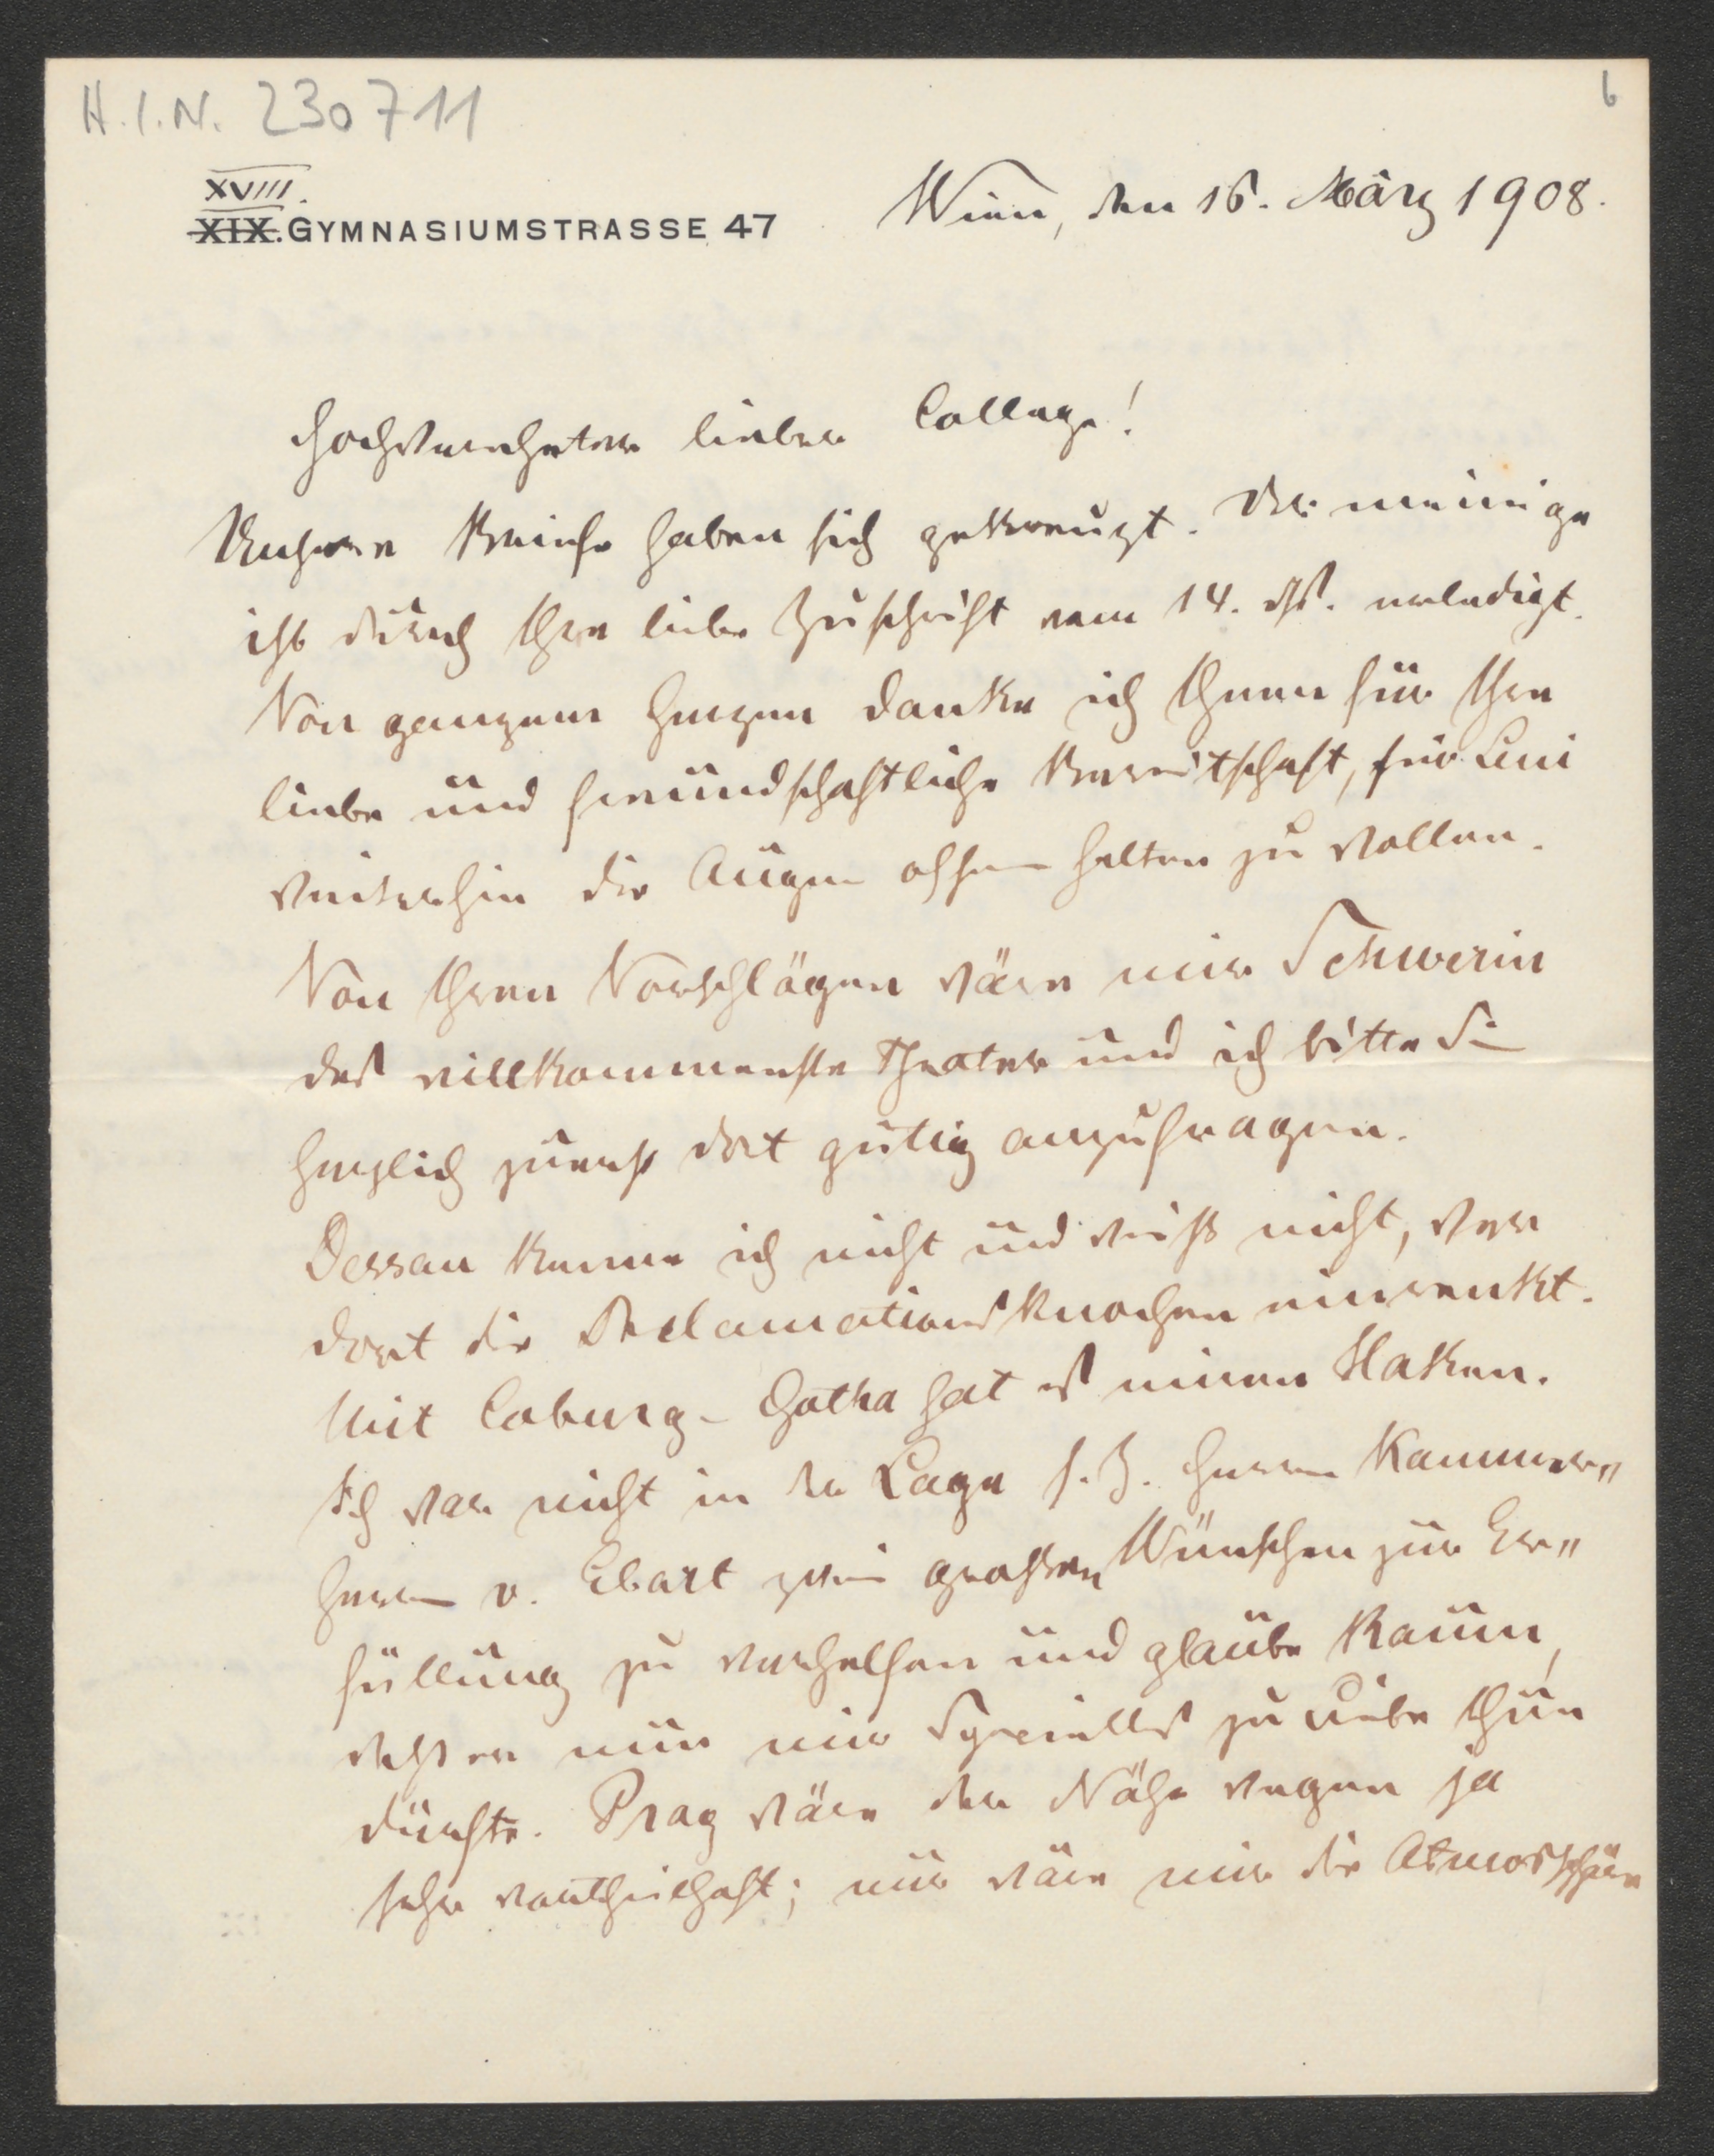 H.I.N. 230711
6
XVIII.
XIX. GYMNASIUMSTRASSE 47
Wien, den 16. März 1908.
Hochverehrter lieber College!
Unsere Briefe haben sich gekreuzt. Der meinige
ist durch Ihre liebe Zuschrift vom 14. ds. erledigt.
Von ganzem Herzen danke ich Ihnen für Ihre
liebe und freundschaftliche Bereitschaft, für Leni
weiterhin die Augen offen halten zu wollen.
Von Ihren Vorschlägen wäre mir Schwerin
das willkommenste Theater und ich bitte Sie
herzlich zuerst dort gütig anzufragen.
Dessau kenne ich nicht und weiß nicht, wer
dort die Declamationsknochen einrenkt.
Mit Coburg-Gotha hat es einen Haken.
Ich war nicht in der Lage s. Z. Herrn Kammer„
herrn v. Ebart zwei großen Wünschen zur Er„
füllung zu verhelfen und glaube kaum,
daß er nun mir Specielles zu Liebe thun
dürfte. Prag wäre der Nähe wegen ja
sehr vortheilhaft; nur wäre mir die Atmosphäre